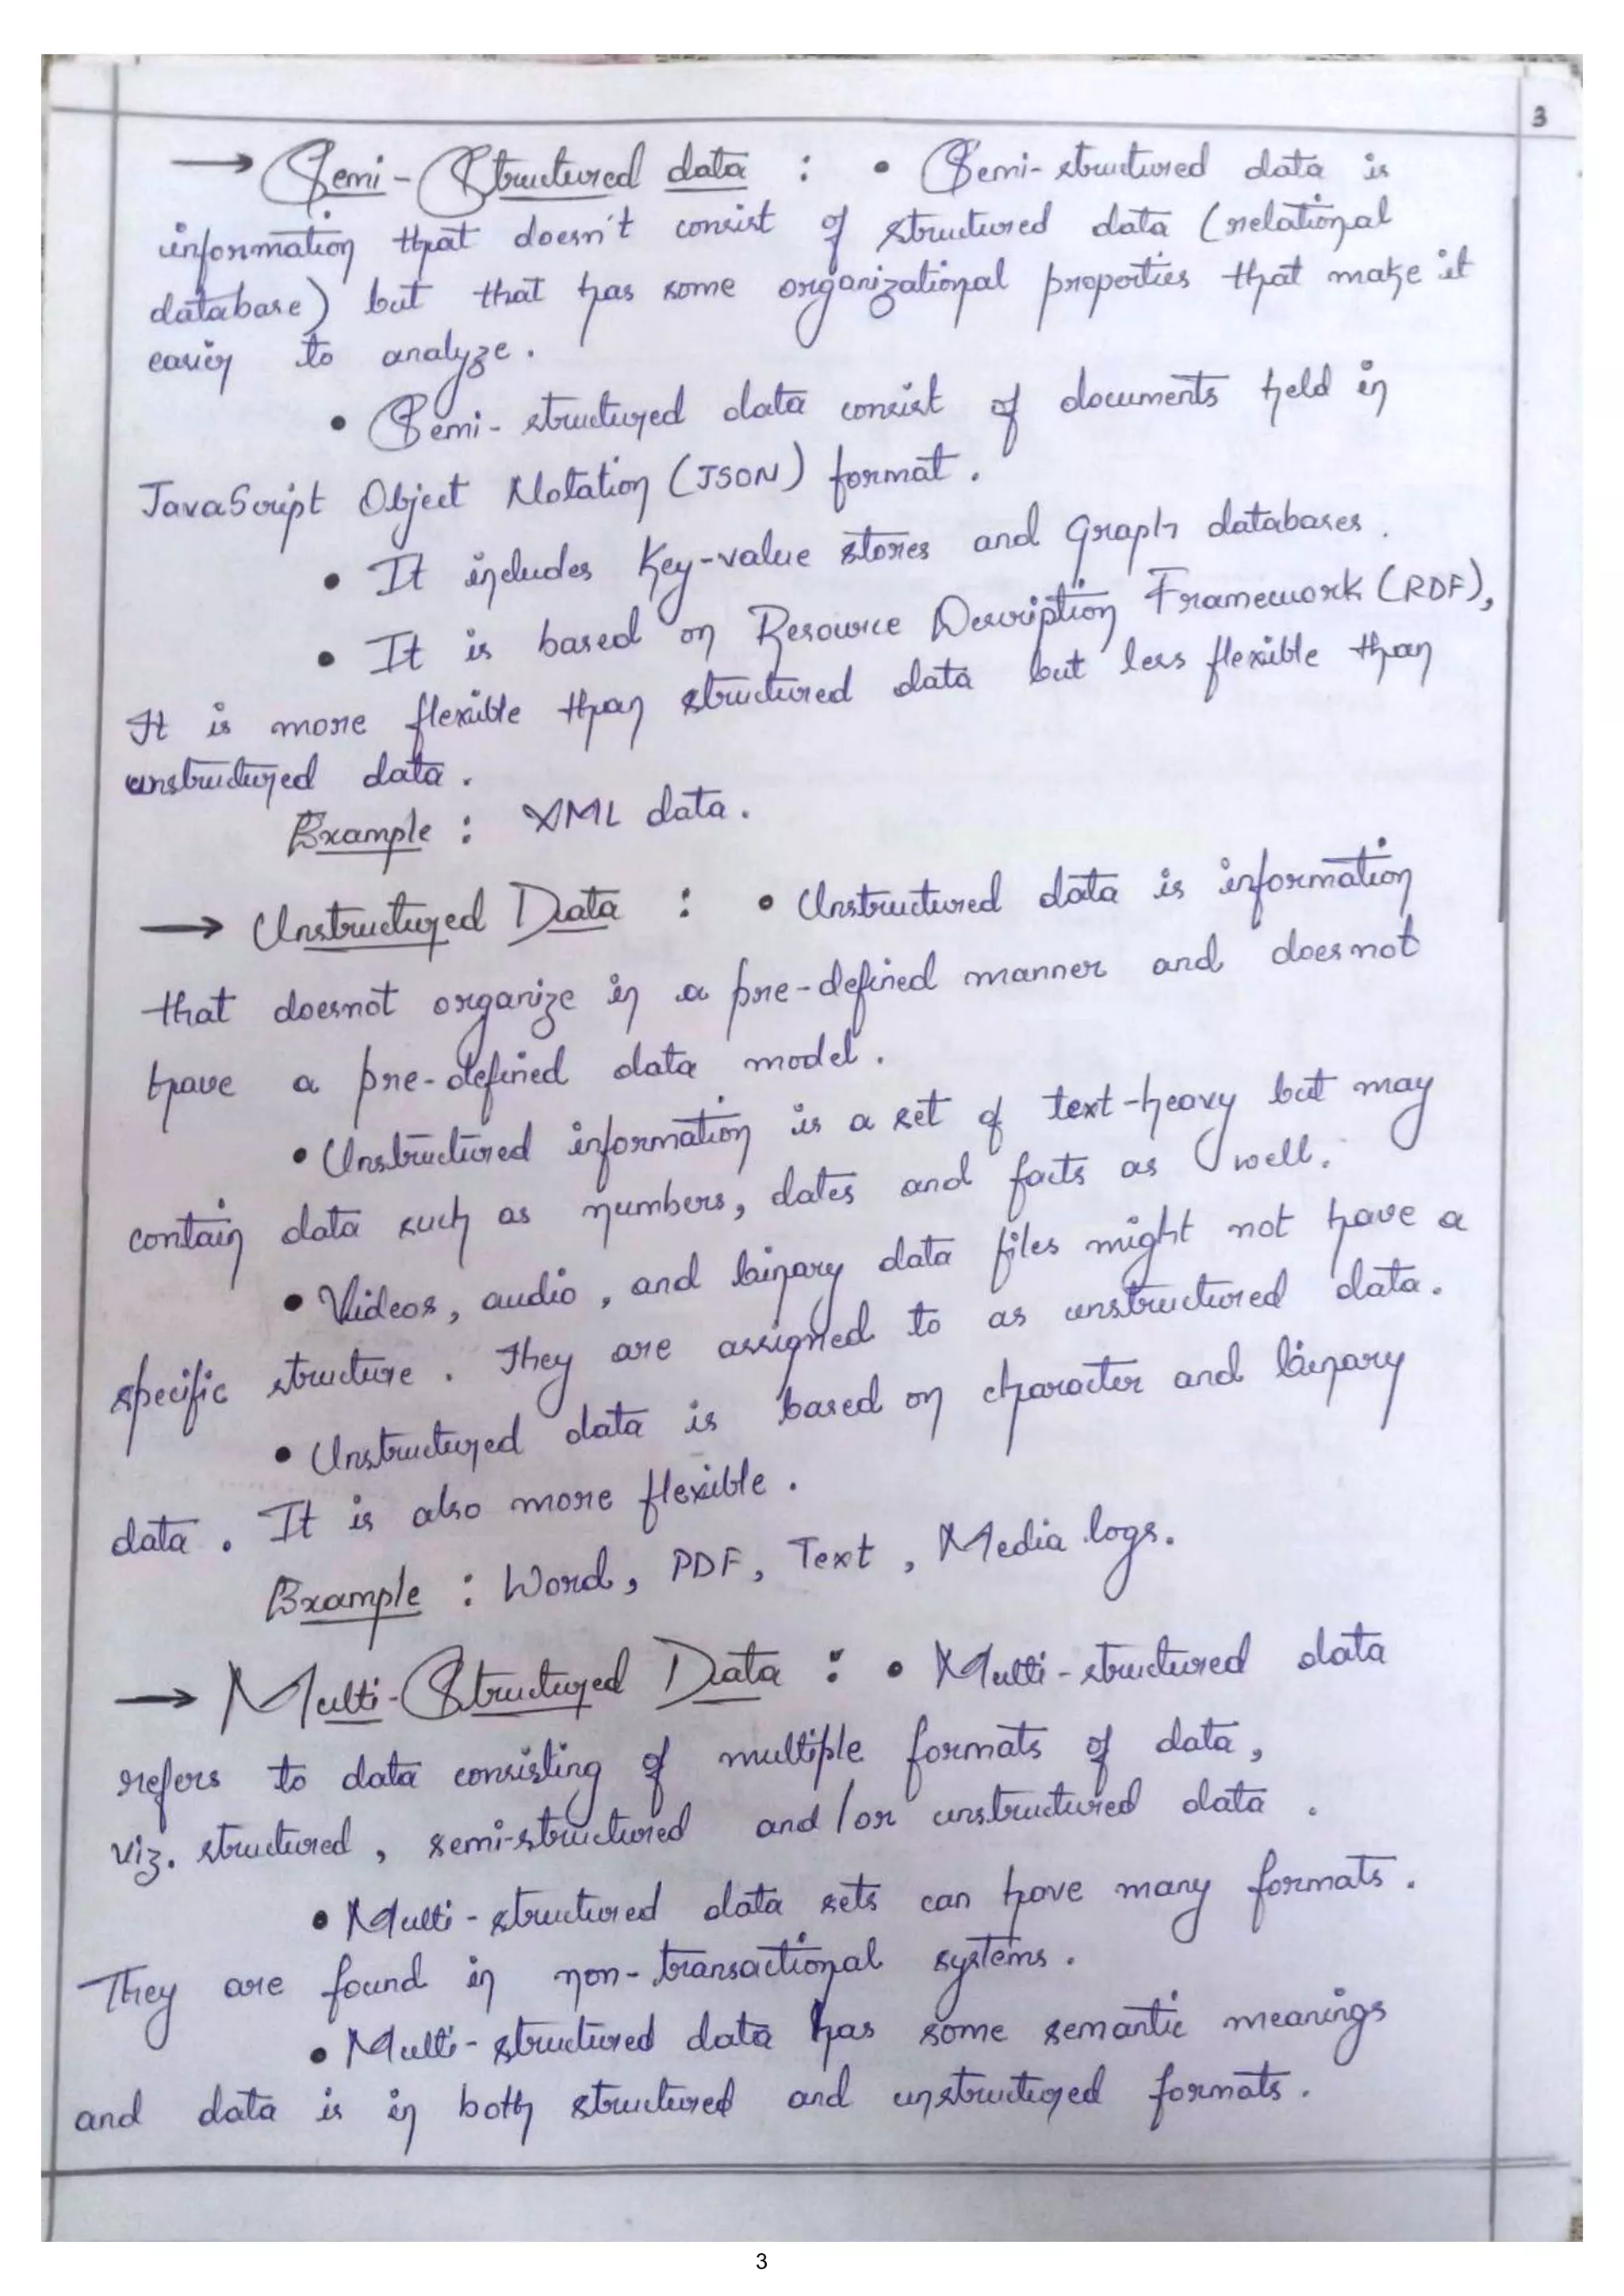 3
→ Semi-Structured data : • Semi-structured data is
information that doesn't consist of structured data (relational
database) but that has some organizational properties that make it
easier to analyze.
• Semi-structured data consist of documents held in
JavaScript Object Notation (JSON) format.
• It includes key-value stores and graph databases.
• It is based on Resource Description Framework (RDF),
It is more flexible than structured data but less flexible than
unstructured data.
Example : XML data.
→ Unstructured Data : • Unstructured data is information
that doesnot organize in a pre-defined manner and doesnot
have a pre-defined data model.
• Unstructured information is a set of text-heavy but may
contain data such as numbers, dates and facts as well.
• Videos, audio, and binary data files might not have a
specific structure. They are assigned to as unstructured data.
• Unstructured data is based on character and binary
data. It is also more flexible.
Example : Word, PDF, Text, Media logs.
→ Multi-Structured Data : • Multi-structured data
refers to data consisting of multiple formats of data,
viz. structured, semi-structured and/or unstructured data.
• Multi-structured data sets can have many formats.
They are found in non-transactional systems.
• Multi-structured data has some semantic meanings
and data is in both structured and unstructured formats.
3